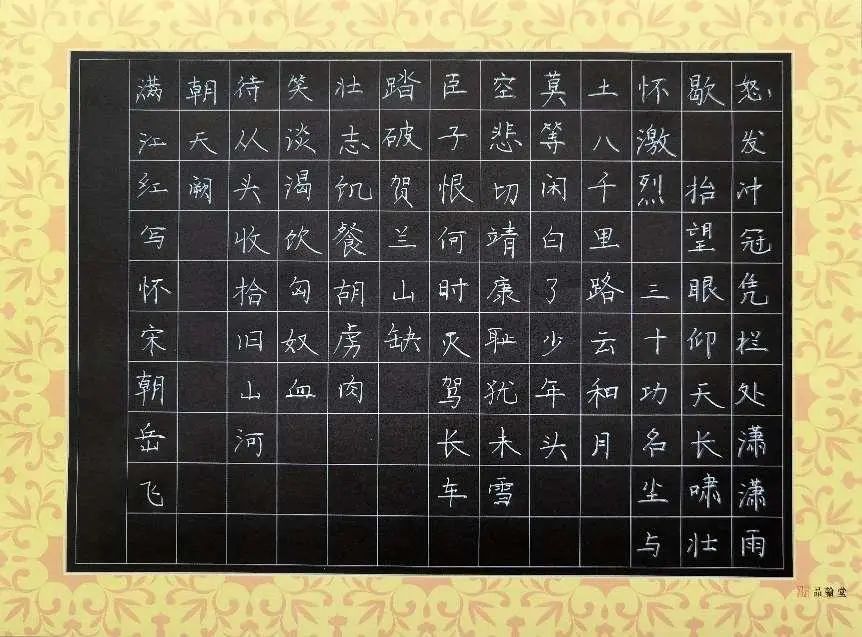 怒发冲冠凭栏处潇潇雨
歇 抬望眼仰天长啸壮
怀激烈 三十功名尘与
土八千里路云和月
莫等闲白了少年头
空悲切靖康耻犹未雪
臣子恨何时灭驾长车
踏破贺兰山缺
壮志饥餐胡虏肉
笑谈渴饮匈奴血
待从头收拾旧山河
朝天阙
满江红写怀宋朝岳飞
品翰堂